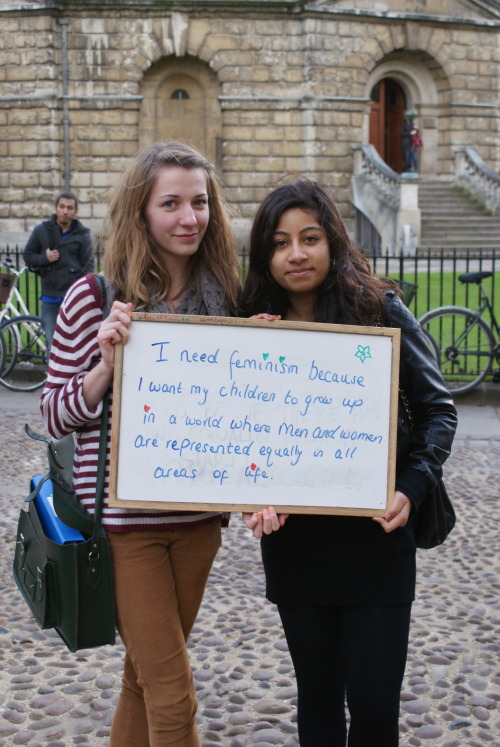 I need feminism because
I want my children to grow up
in a world where men and women
are represented equally in all
areas of life.